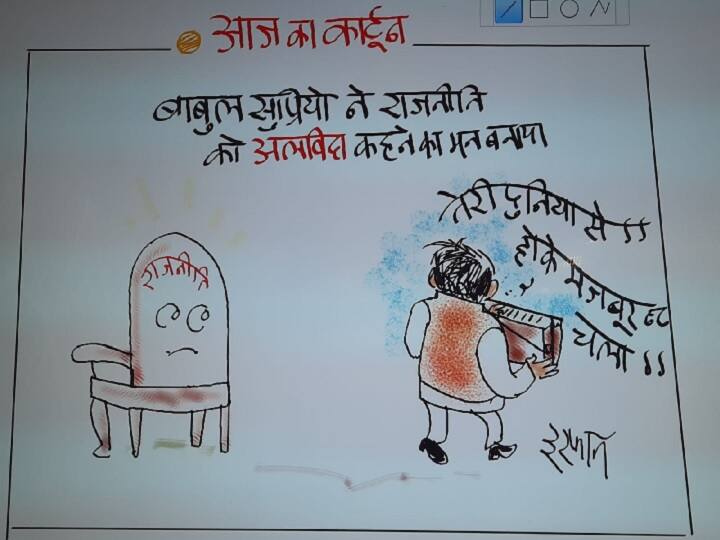 आज का कार्टून
बाबुल सुप्रियो ने राजनीति
को अलविदा कहने का मन बनाया
राजनीति
तेरी दुनिया से !!
होके मजबूर
चला !!
इरफान